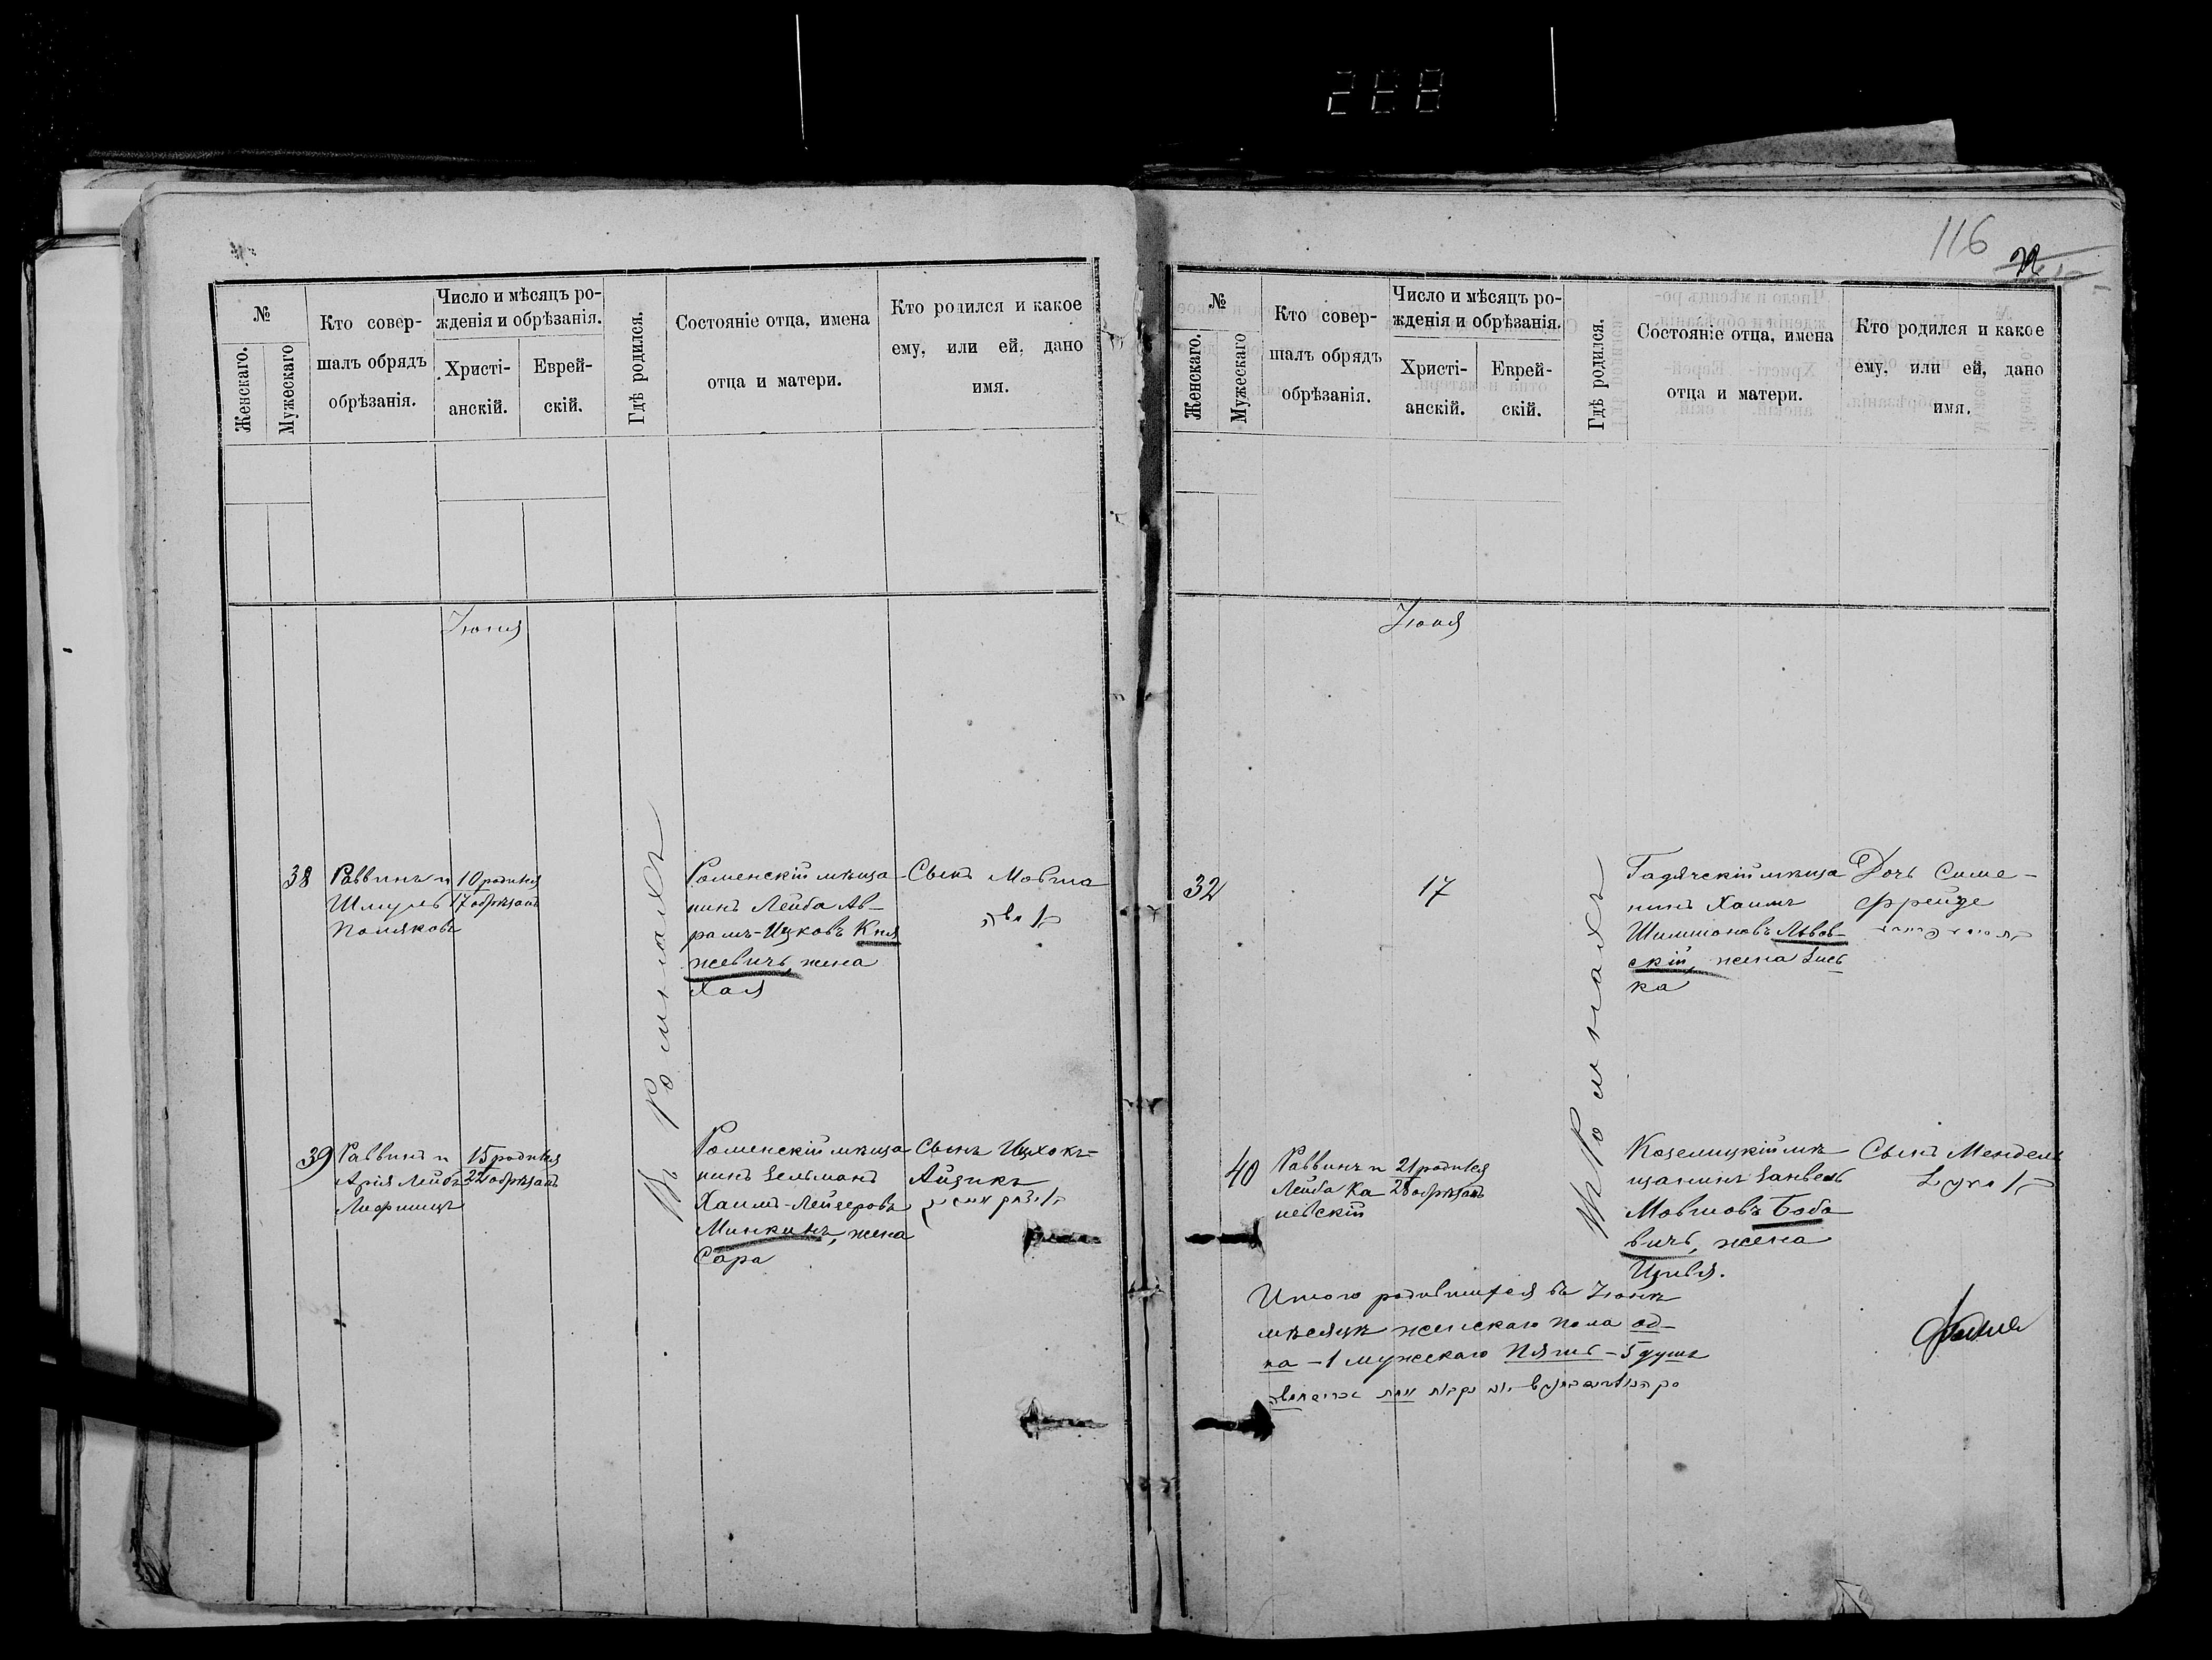 288
№
Женскаго.
Мужескаго
Кто совер-
шалъ обрядъ
обрѣзанія.
Число и мѣсяцъ ро-
жденія и обрѣзанія.
Христі-
анскій.
Еврей-
скій.
Гдѣ родился.
Состояніе отца, имена
отца и матери.
Кто родился и какое
ему, или ей, дано
имя.
Іюня
38
Раввинъ и
Шмуль
Поляковъ
10 родился
17 обрѣзанъ
Въ Ромнахъ
Роменскій мѣща
нинъ Лейба Ав-
рамъ-Ицковъ Кня
жевичъ, жена
Хая
Сынъ Мовша
39
Раввинъ и
Арія Лейбъ
Лифшицъ
15 родился
22 обрѣзанъ
Роменскій мѣща
нинъ Зельманъ
Хаимъ-Лейзеровъ
Минкинъ, жена
Сара
Сынъ Ицхокъ-
Айзикъ
116
№
Женскаго.
Мужескаго
Кто совер-
шалъ обрядъ
обрѣзанія.
Число и мѣсяцъ ро-
жденія и обрѣзанія.
Христі-
анскій.
Еврей-
скій.
Гдѣ родился.
Состояніе отца, имена
отца и матери.
Кто родился и какое
ему, или ей, дано
имя.
Іюня
32
17
Въ Ромнахъ
Гадячскій мѣща
нинъ Хаимъ
Шимшоновъ Львов-
скій, жена
ка
Дочь Симе-
Фрейде
40
Раввинъ и
Лейба Ка
невскій
21 родился
28 обрѣзанъ
Козелицкій мѣ
щанинъ Занвель
Мовшовъ Боба
вичъ, жена
Цивья.
Сынъ Мендель
Итого родившихся въ Іюнѣ
мѣсяцѣ женскаго пола од-
на - 1 мужескаго пять - 5 душъ